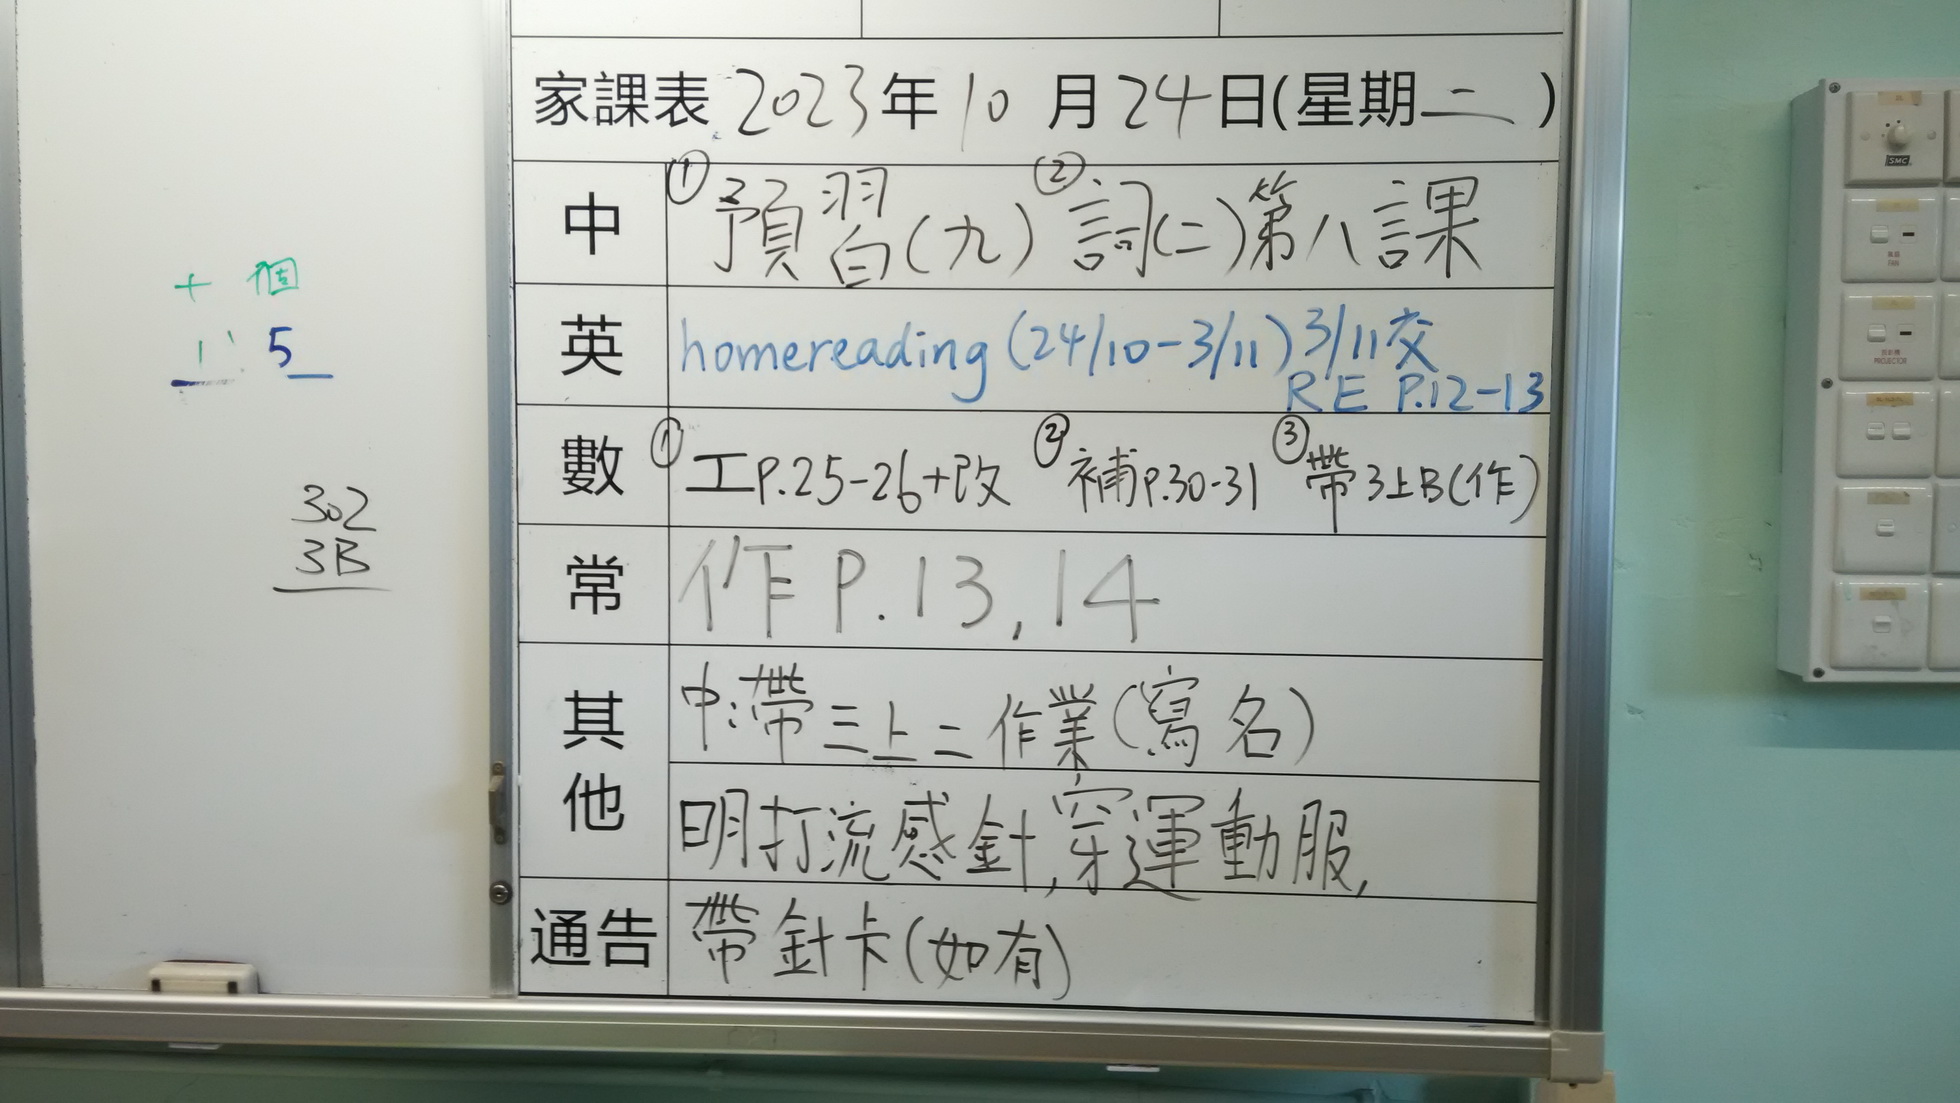 家課表 2023年10月24日(星期二)
中 ①預習(九) ②詞(二)第八課
英 homereading (24/10-3/11) 3/11交
RE P.12-13
數 ①工P.25-26+改 ②補P.30-31 ③帶3上B(作)
常 作P.13,14
其他 中:帶三上二作業(寫名)
明打流感針,穿運動服,
通告 帶針卡(如有)
十 個
1 5
302
3B
SMC
FAN
PROJECTOR